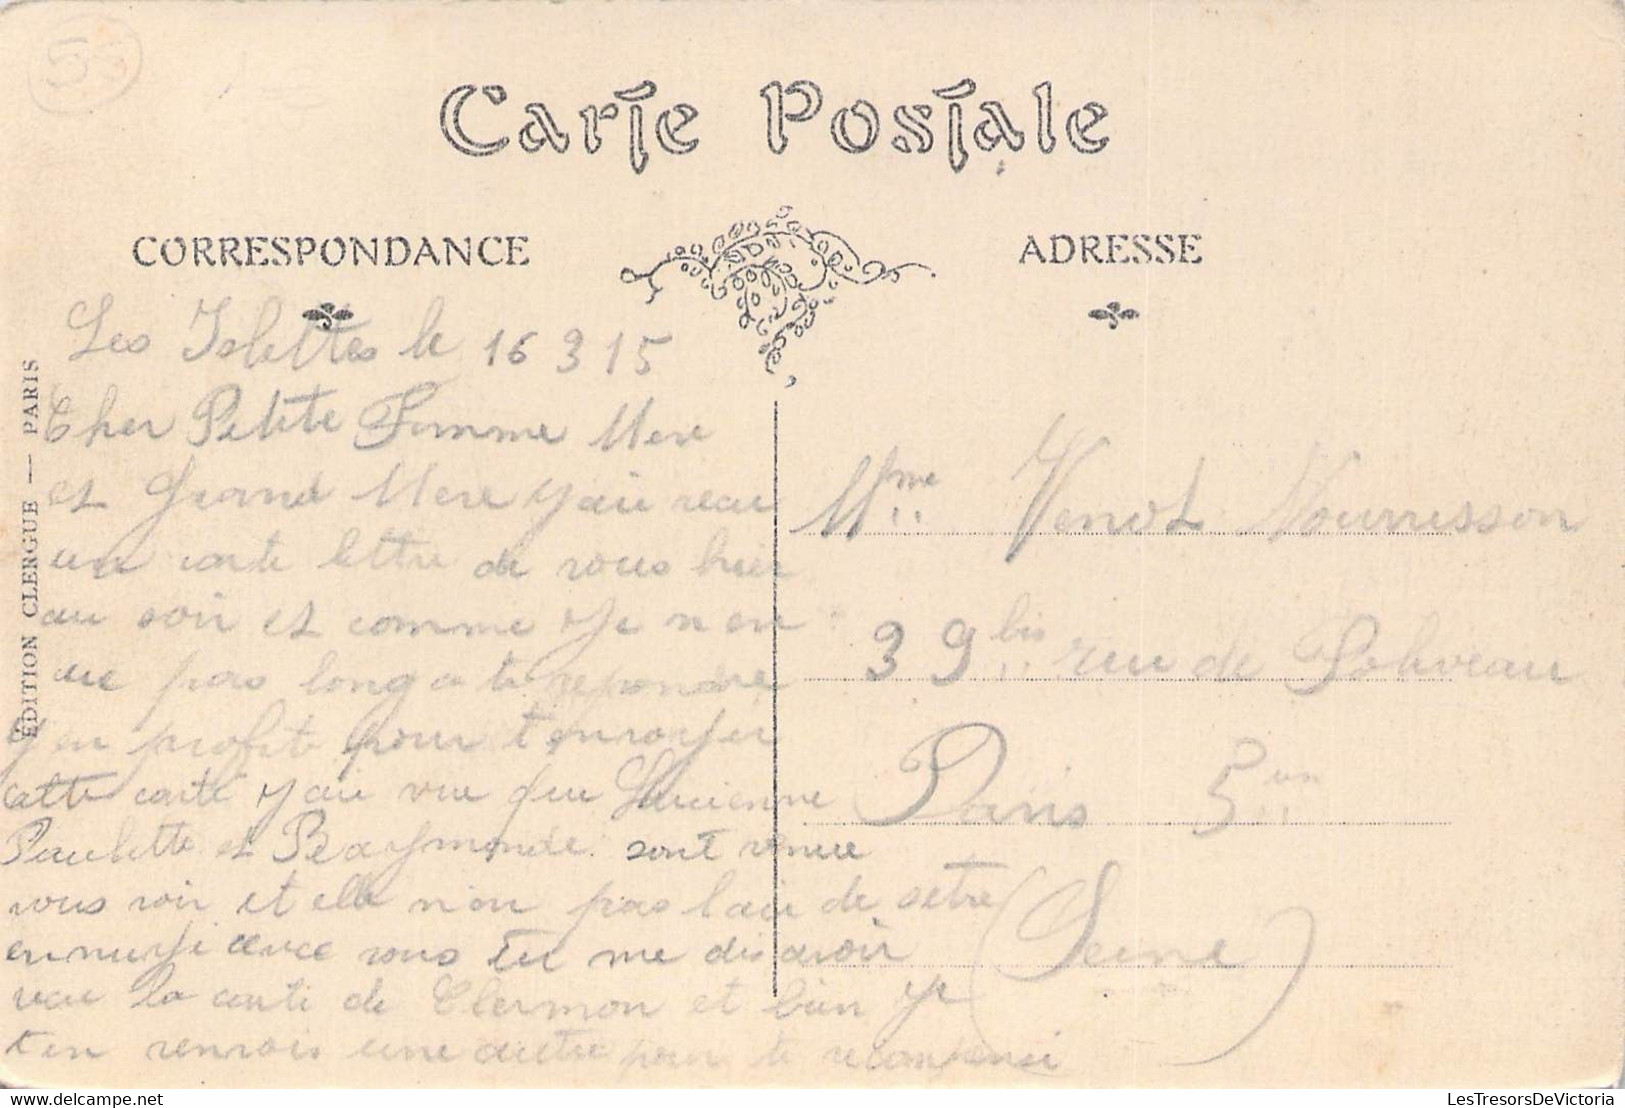 55
Carte Postale
CORRESPONDANCE
ADRESSE
EDITION CLERGUE — PARIS
Les Islettes le 16 3 15
Cher Petite Femme Mere
et Grand Mere y aie recu
une carte lettre de vous hier
au soir et comme je nen
aie pas long a te repondre
y en profite pour t envoyer
cette carte y aie vue que Lucienne
Paulette et Raymonde sont venue
vous voir et elle non pas l'air de setre
ennuye avec vous tu me dis avoir
recu la carte de Clermon et bien je
ten renvois une autre pour te recompensé
Mme Venot Nourrisson
39 bis rue de Poliveau
Paris 5em
(Seine)
LesTresorsDeVictoria
LesTresorsDeVictoria.com